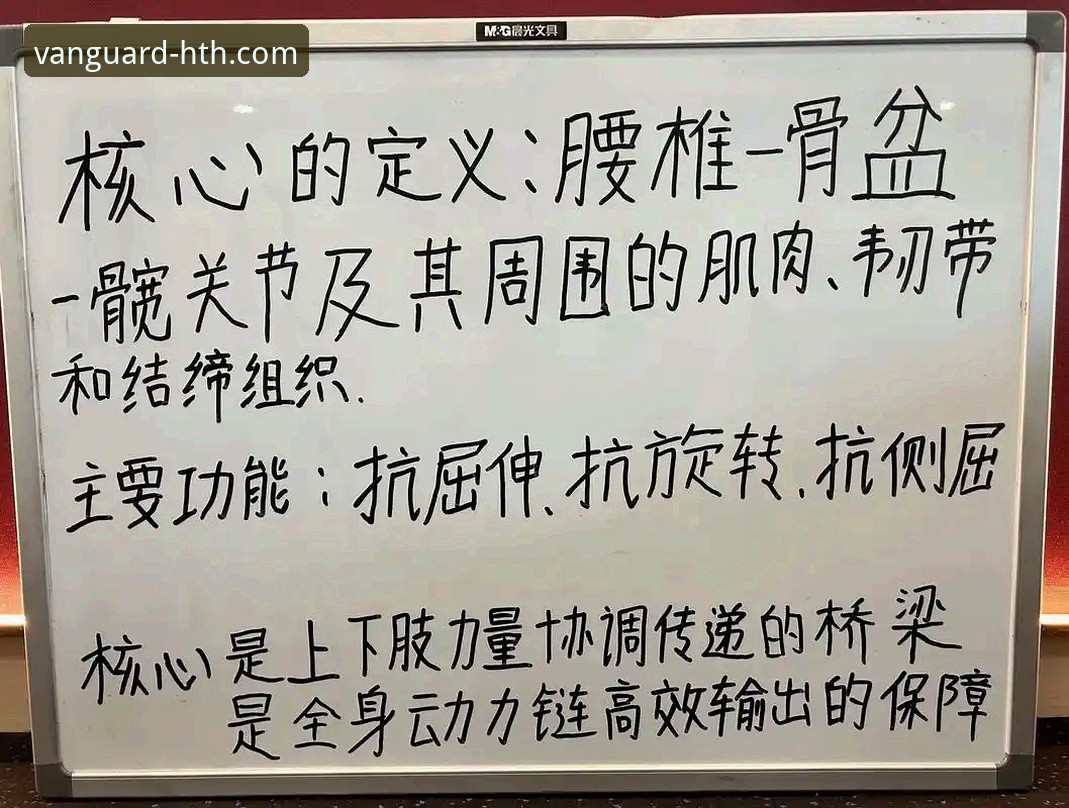 M&G晨光文具
vanguard-hth.com
核心的定义:腰椎-骨盆
-髋关节及其周围的肌肉、韧带
和结缔组织.
主要功能:抗屈伸、抗旋转、抗侧屈
核心是上下肢力量协调传递的桥梁
是全身动力链高效输出的保障